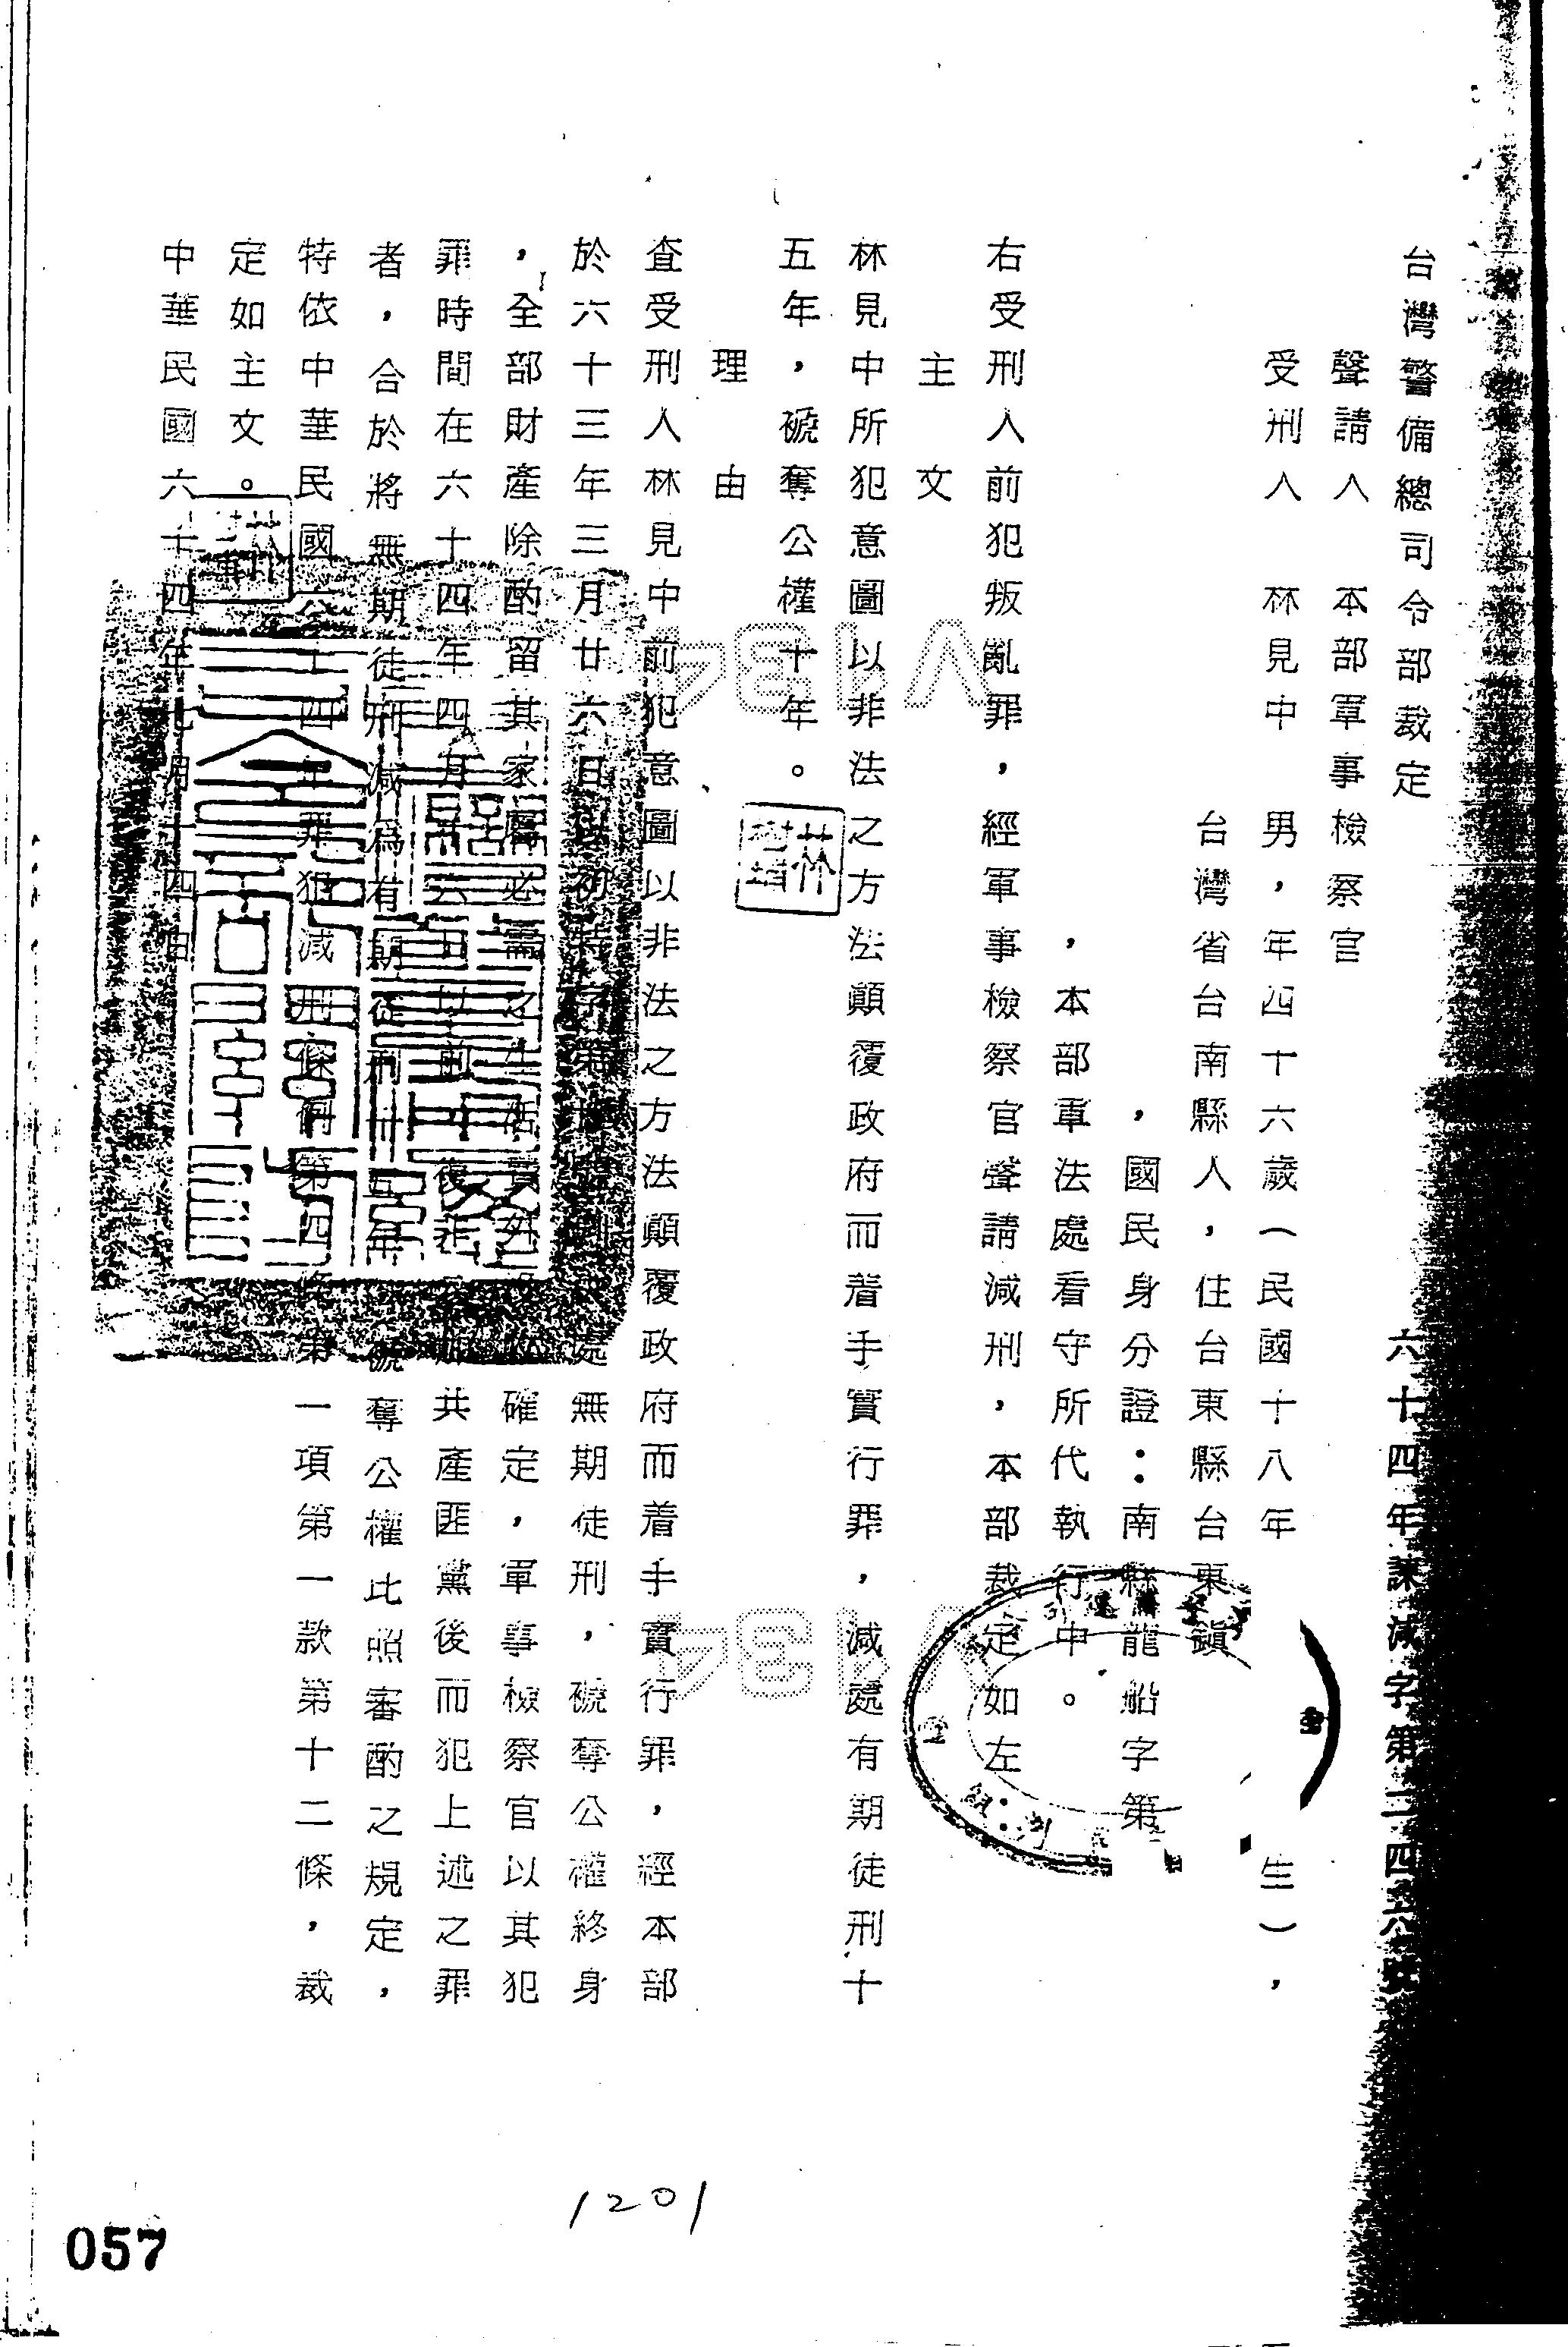 台灣警備總司令部裁定
六十四年諫減字第二四六號
聲請人　本部軍事檢察官
受刑人　林見中　男，年四十六歲（民國十八年　生），
台灣省台南縣人，住台東縣台東鎮
，國民身分證：南縣龍船字第
，本部軍法處看守所代執行中。
右受刑人前犯叛亂罪，經軍事檢察官聲請減刑，本部裁定如左：
主文
林見中所犯意圖以非法之方法顛覆政府而着手實行罪，減處有期徒刑十
五年，褫奪公權十年。
理由
查受刑人林見中前犯意圖以非法之方法顛覆政府而着手實行罪，經本部
於六十三年三月廿六日以初特字第 號 判 處無期徒刑，褫奪公權終身
，全部財產除酌留其家屬必需之生活費外 確定，軍事檢察官以其犯
罪時間在六十四年四月十六日以前 復非 參加共產匪黨後而犯上述之罪
者，合於將無期徒刑減為有期徒刑十五年 褫奪公權比照審酌之規定，
特依中華民國六十四年罪犯減刑條例第四條第一項第一款第十二條，裁
定如主文。
中華民國六十四年七月十四日
林
V134
V134
1201
057